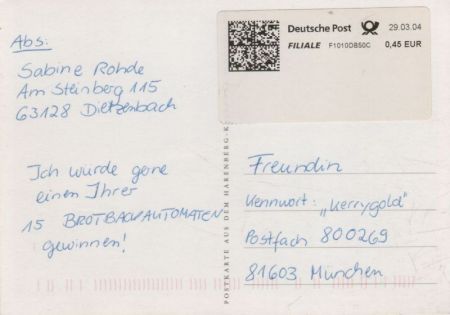 Abs:
Sabine Rohde
Am Steinberg 115
63128 Dietzenbach
Ich würde gerne
einen Ihrer
15 BROTBACKAUTOMATEN
gewinnen!
Deutsche Post 29.03.04
FILIALE F1010DB50C 0,45 EUR
POSTKARTE AUS DEM HARENBERG-K
Freundin
Kennwort: „Kerrygold"
Postfach 800269
81603 München